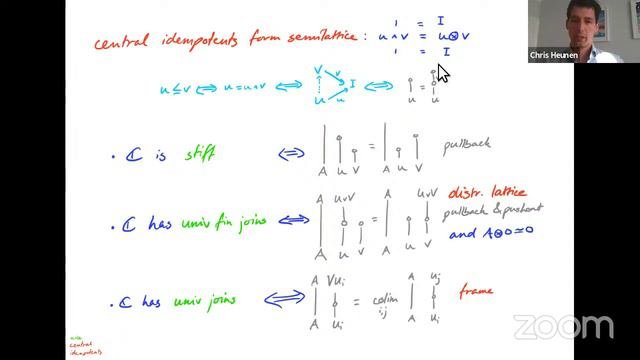 1 = I
central idempotents form semilattice: u∧v = u⊗v
1 = I
u ≤ v ⟺ u = u∧v ⟺ v v I u u ⟺ u = u
• ℂ is stiff ⟺ A u v = A u v pullback
• ℂ has univ fin joins ⟺ A u∨v A u v = A u∨v A u v distr. lattice
pullback & pushout
and A⊗0≃0
• ℂ has univ joins ⟺ A ∨ui A ui = colim ij A uj A ui frame
central
idempotents
Chris Heunen
zoom